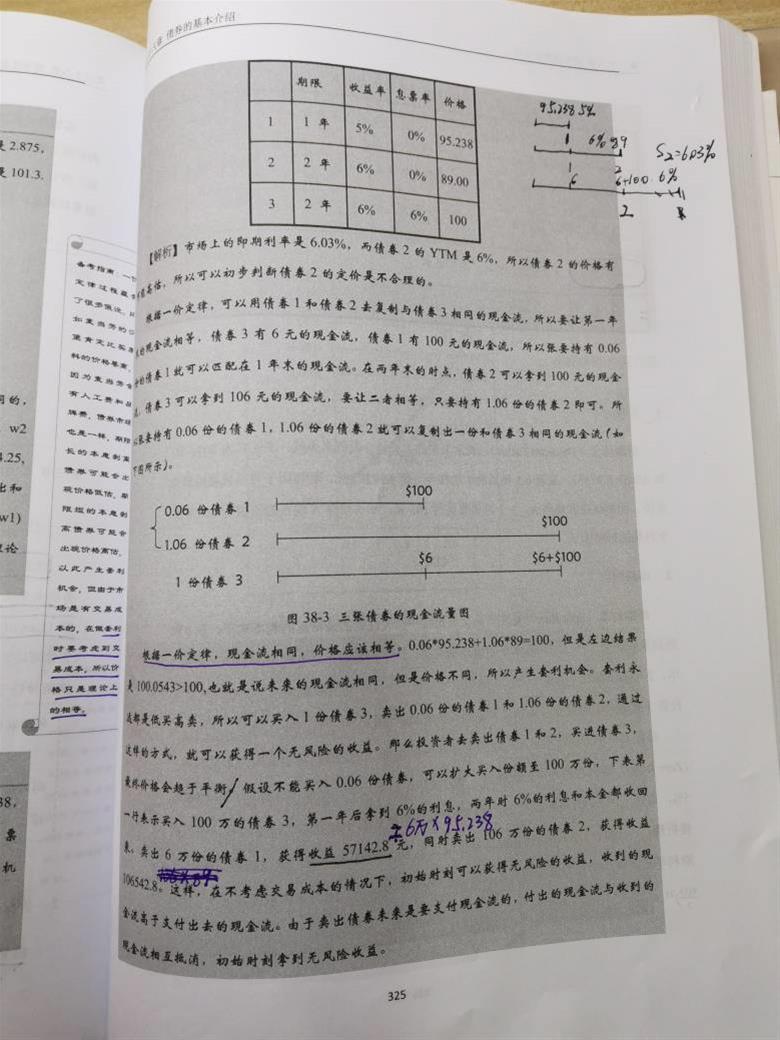 债券的基本介绍
期限 收益率 息票率 价格
1 1 年 5% 0% 95.238
2 2 年 6% 0% 89.00
3 2 年 6% 6% 100
95.238 5%
1 6% 89
S2=6.03%
1 2
6 6+100 6%
2
【解析】市场上的即期利率是 6.03%，而债券 2 的 YTM 是 6%，所以债券 2 的价格有
高估，所以可以初步判断债券 2 的定价是不合理的。
根据一价定律，可以用债券 1 和债券 2 去复制与债券 3 相同的现金流，所以要让第一年
的现金流相等，债券 3 有 6 元的现金流，债券 1 有 100 元的现金流，所以张要持有 0.06
份的债券 1 就可以匹配在 1 年末的现金流。在两年末的时点，债券 2 可以拿到 100 元的现金
流，债券 3 可以拿到 106 元的现金流，要让二者相等，只要持有 1.06 份的债券 2 即可。所
张要持有 0.06 份的债券 1，1.06 份的债券 2 就可以复制出一份和债券 3 相同的现金流（如
下图所示）。
0.06 份债券 1 $100
1.06 份债券 2 $100
1 份债券 3 $6 $6+$100
图 38-3 三张债券的现金流量图
根据一价定律，现金流相同，价格应该相等。0.06*95.238+1.06*89=100，但是左边结果
是 100.0543>100,也就是说未来的现金流相同，但是价格不同，所以产生套利机会。套利永
远都是低买高卖，所以可以买入 1 份债券 3，卖出 0.06 份的债券 1 和 1.06 份的债券 2，通过
这样的方式，就可以获得一个无风险的收益。那么投资者去卖出债券 1 和 2，买进债券 3，
最终价格会趋于平衡 假设不能买入 0.06 份债券，可以扩大买入份额至 100 万份，下表第
一行表示买入 100 万的债券 3，第一年后拿到 6%的利息，两年时 6%的利息和本金都收回
6万×95.238
来，卖出 6 万份的债券 1，获得收益 57142.8 元，同时卖出 106 万份的债券 2，获得收益
106542.8。这样，在不考虑交易成本的情况下，初始时刻可以获得无风险的收益，收到的现
金流高于支付出去的现金流。由于卖出债券未来是要支付现金流的，付出的现金流与收到的
现金流相互抵消，初始时刻拿到无风险收益。
325
备考指南
定律过程
了很多假设
因为麦当劳
有人工费和
牌费，债券市
也是一样，期限
长的本息剥离
债券可能会出
现价格低估，期
限短的本息剥
离债券可能会
出现价格高估，
以此产生套利
机会，但由于市
场是有交易成
本的，在做套利
时要考虑到交
易成本，所以价
格只是理论上
的相等。
是 2.875，
是 101.3.
w2
4.25,
出和
w1)
理论
38,
票
机